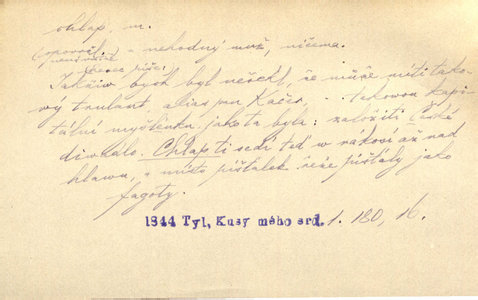 chlap, m.
opovržl. a nehodný muž, ničema.
herec píše:
Jakživ bych byl neřekl, že může míti tako-
vý trulant, alias pan Kačer, ... takovou kapi-
tální myšlénku, jako ta byla: založiti České
divadlo. Chlap ti sedí teď w rákosí až nad
hlawu, a místo píšťalek řeže píšťaly jako
fagoty.
1844 Tyl, Kusy mého srd. 1. 180, 16.